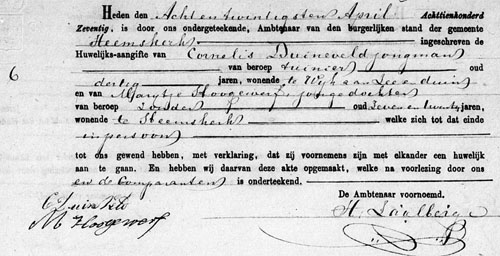 Heden den Acht en twintigsten April Achttienhonderd
Zeventig, is door ons ondergeteekende, Ambtenaar van den burgerlijken stand der gemeente
Heemskerk ingeschreven de
Huwelijks-aangifte van Cornelis Duineveld jongman
6
van beroep tuinier oud
dertig jaren, wonende te Wijk aan Zee en duin
en van Maartje Hoogewerf, jongedochter
van beroep zonder oud zeven en twintig jaren,
wonende te Heemskerk welke zich tot dat einde
in persoon
tot ons gewend hebben, met verklaring, dat zij voornemens zijn met elkander een huwelijk
aan te gaan. En hebben wij daarvan deze akte opgemaakt, welke na voorlezing door ons
en de Comparanten is onderteekend.
De Ambtenaar voornoemd.
C Duineveld
M Hoogewerf
H.